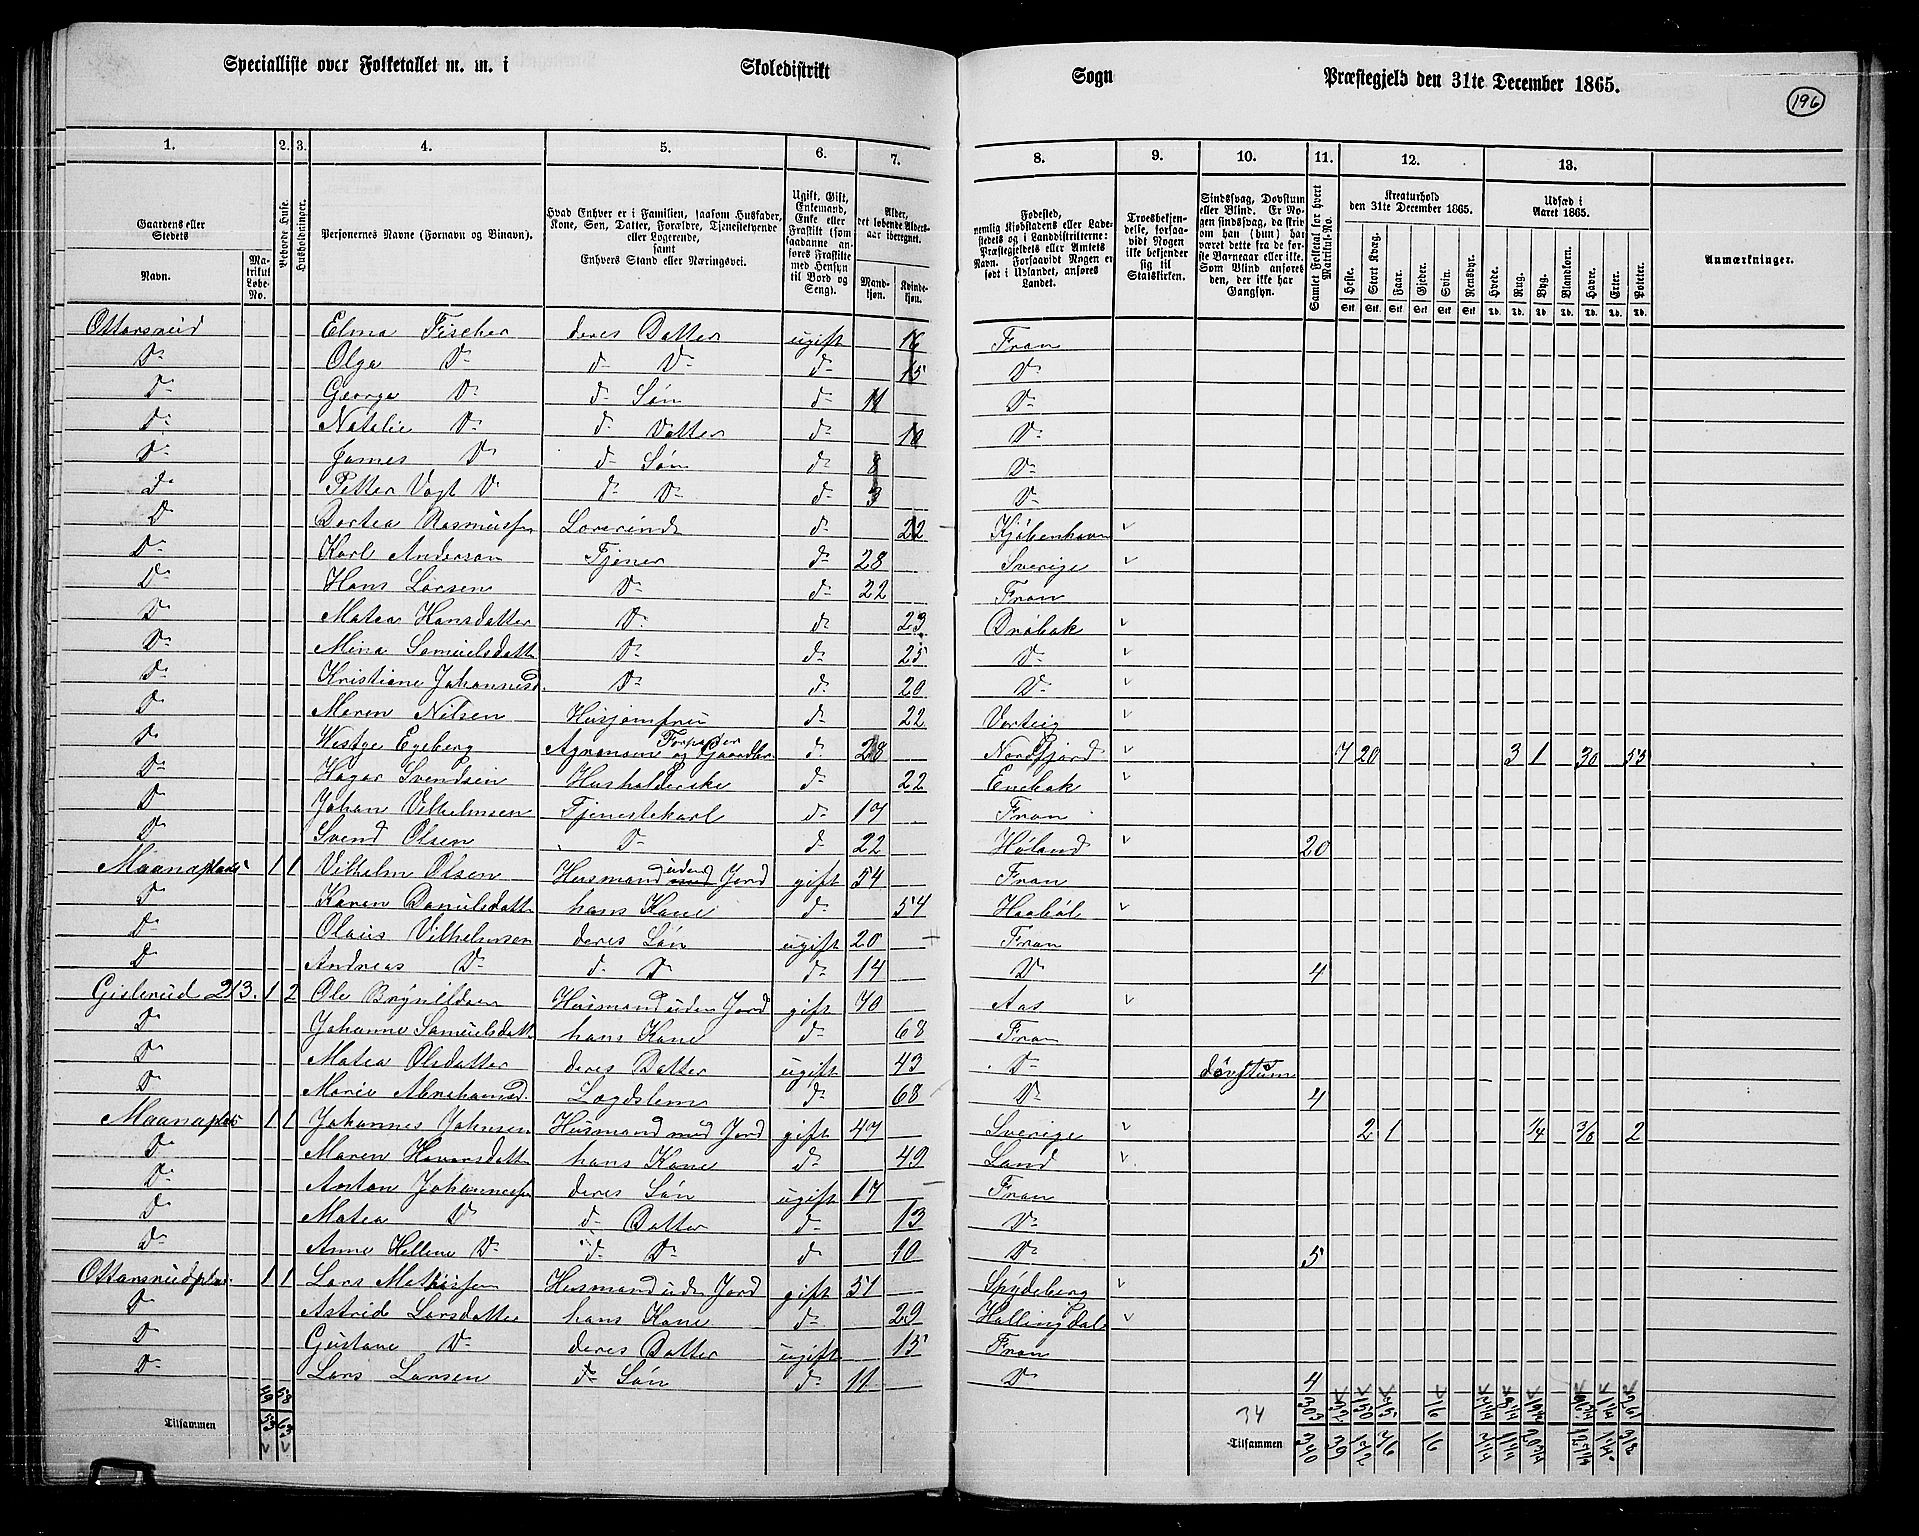 Specialliste over Folketallet m. m. i Skoledistrikt Sogn Præstegjeld den 31te December 1865.
196
1. 2. 3. 4. 5. 6. 7. 8. 9. 10. 11. 12. 13.
Gaardens eller Stedets
Navn.
Matrikul Løbe-No.
Beboede Huse.
Husholdninger.
Personernes Navne (Fornavn og Binavn).
Hvad Enhver er i Familien, saasom Husfader, Kone, Søn, Datter, Forældre, Tjenestetyende eller Logerende, samt Enhvers Stand eller Næringsvei.
Ugift, Gift, Enkemand, Enke eller Fraskilt (som saadanne anføres Fraskilte med Hensyn til Bord og Seng).
Alder, det løbende Aldersaar iberegnet.
Mandkjøn. Kvindekjøn.
Fødested, nemlig Kjøbstadens eller Ladestedets og i Landdistrikterne: Præstegjeldets eller Amtets Navn. Forsaavidt Nogen er født i Udlandet, anføres Landet.
Troesbekjendelse, forsaavidt Nogen ikke bekjender sig til Statskirken.
Sindssvag, Døvstum eller Blind. Er Nogen sindssvag, da skrives om han (hun) har været dette fra de første Barneaar eller ikke. Som Blind anføres den, der ikke har Gangsyn.
Samlet Folketal for hvert Matrikul-No.
Kreaturhold den 31te December 1865.
Heste. Stort Kvæg. Faar. Gjeder. Svin. Rensdyr.
Udsæd i Aaret 1865.
Hvede. Rug. Byg. Blandkorn. Havre. Erter. Poteter.
Anmærkninger.
Stk. Stk. Stk. Stk. Stk. Stk. Td. Td. Td. Td. Td. Td. Td.
Ottarsrud Elma Fischer deres Datter ugift 16 Fron
D- Olga D- d- D- d- 15 D-
D- George D- d- Søn d- 11 D-
D- Natalie D- d- Datter d- 10 D-
D- James D- d- Søn d- 8 D-
D- Petter Vogt D- d- D- d- 3 D-
D Dortea Rasmussen d- 22 Kjøbenhavn
D- Karl Anderson Tjener d- 28 Sverige
D- Hans Larsen D- d- 22 Fron
D Matea Hansdatter D- d- 23 Drøbak
D- Mina Samuelsdatt D- d- 25 D-
D Kristiane Johannesd. D- d- 20 D-
D Maren Nilsen Husjomfru d- 22
D Westye Egeberg Agronom og Forpagter Gaardbr. d 28 Nordfjord 7 20 3 1 30 53
D- Hagar Svendsen d- 22 Enebak
D Johan Vilhelmsen Tjenestekarl d- 17 Fron
D Svend Olsen D- d 22 Høland 20
Maanaplads 1 1 Vilhelm Olsen Husmand uden Jord gift 54 Fron
D Karen Danielsdatt hans Kone d- 54 Haabøl
D- Olaus Vilhelmsen deres Søn ugift 20 Fron
D Andreas D- d- D d- 14 D- 4
Gislerud 213. 1 2 Ole Brynildsen Husmand uden Jord gift 70 Aas
D Johanne Samuelsdatt hans Kone d- 68 Fron
D Matea Olsdatter deres Datter ugift 43 D- døvstum
D Marie Abrahamsd. Lægdslem d- 68 D- 4
Maanaplads 1 1 Johannes Johnsen Husmand med Jord gift 47 Sverige 2 1 1/4 3/8 2
D Maren Haversdatt hans Kone d- 49 Land
D- Anton Johannessen deres Søn ugift 17 Fron
D Matea D d- Datter d- 13 D-
D- Anne Hellene D- d- D- d 10 D- 5
Ottarsrudplds. 1 1 Lars Mathissen Husmand uden Jord gift 51 Spydeberg
D Astrid Larsdatter hans Kone d- 29 Hallingdal
D Gustave D- deres Datter ugift 15 Fron
D- Lars Larsen d- Søn d- 11 D 4
49 58 303 150 45 16
Tilsammen 53 63 34 Tilsammen 340 39 172 46 16